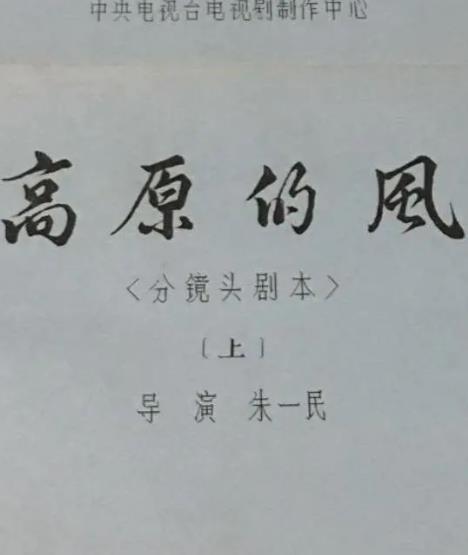 中央电视台电视剧制作中心
高原的風
<分镜头剧本>
〔上〕
导 演 朱一民